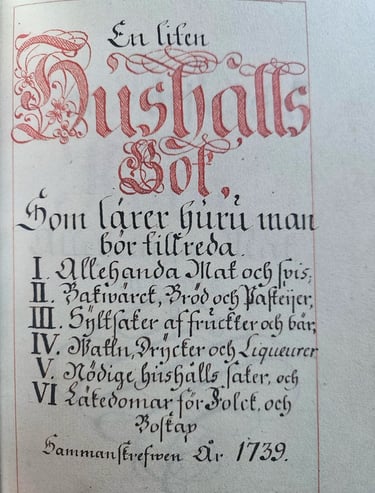 En liten
Hushålls
Bok,
Som lärer huru man
bör tillreda
I. Allehanda Mat och spis,
II. Bakwärck, Bröd och Pasteijer,
III. Syltsaker af fruckter och bär,
IV. Watln, Drycker och Liqueurer
V. Nödige hushålls saker, och
VI Läkedomar för Folck, och
Boskap
Sammanskrefwen År 1739.